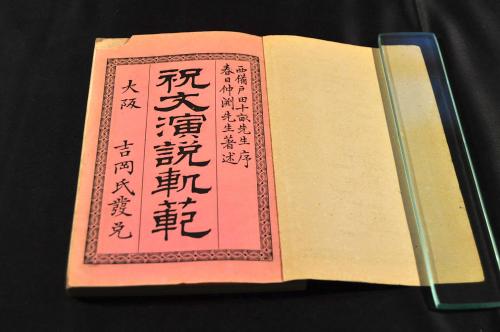 西備戸田十畝先生序
春日仲淵先生著述
祝文演説軌範
大阪 吉岡氏發兌